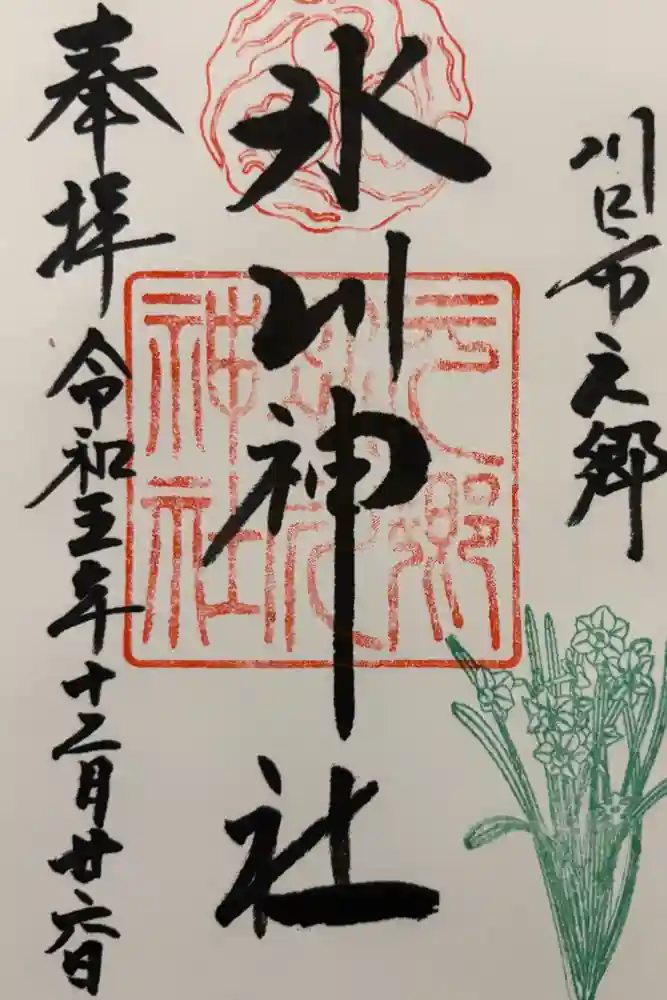 川口市元郷
氷川神社
奉拝
令和五年十二月廿六日
元郷
氷川
神社